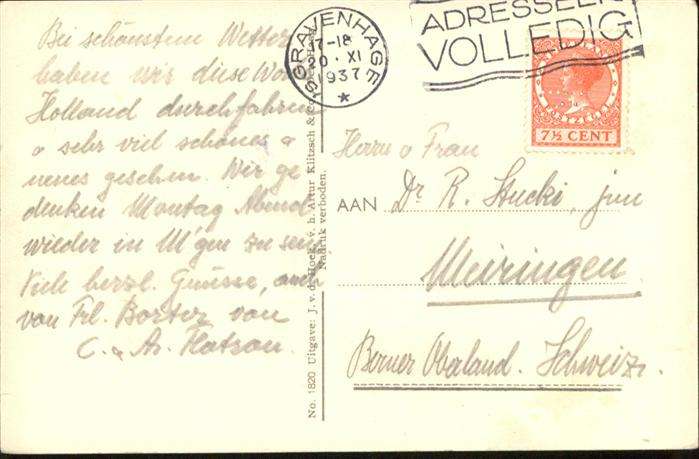 Bei schönstem Wetter
haben wir diese Wo
Holland durchfahren
& sehr viel schönes &
neues gesehen. Wir ge
denken Montag Abend
wieder in M'gen zu sein
Viele herzl. Grüsse, auch
von Frl. Borter von
C. & A.
'S GRAVENHAGE
17-18
20 XI
1937
ADRESSEER
VOLLEDIG
7½ CENT
No. 1820 Uitgave: J. v. d. Hoek, v. h. Artur Klitzsch & Co.
Nadruk verboden.
Herrn & Frau
AAN Dr R. Stucki, jun
Meiringen
Berner Oberland. Schweiz.